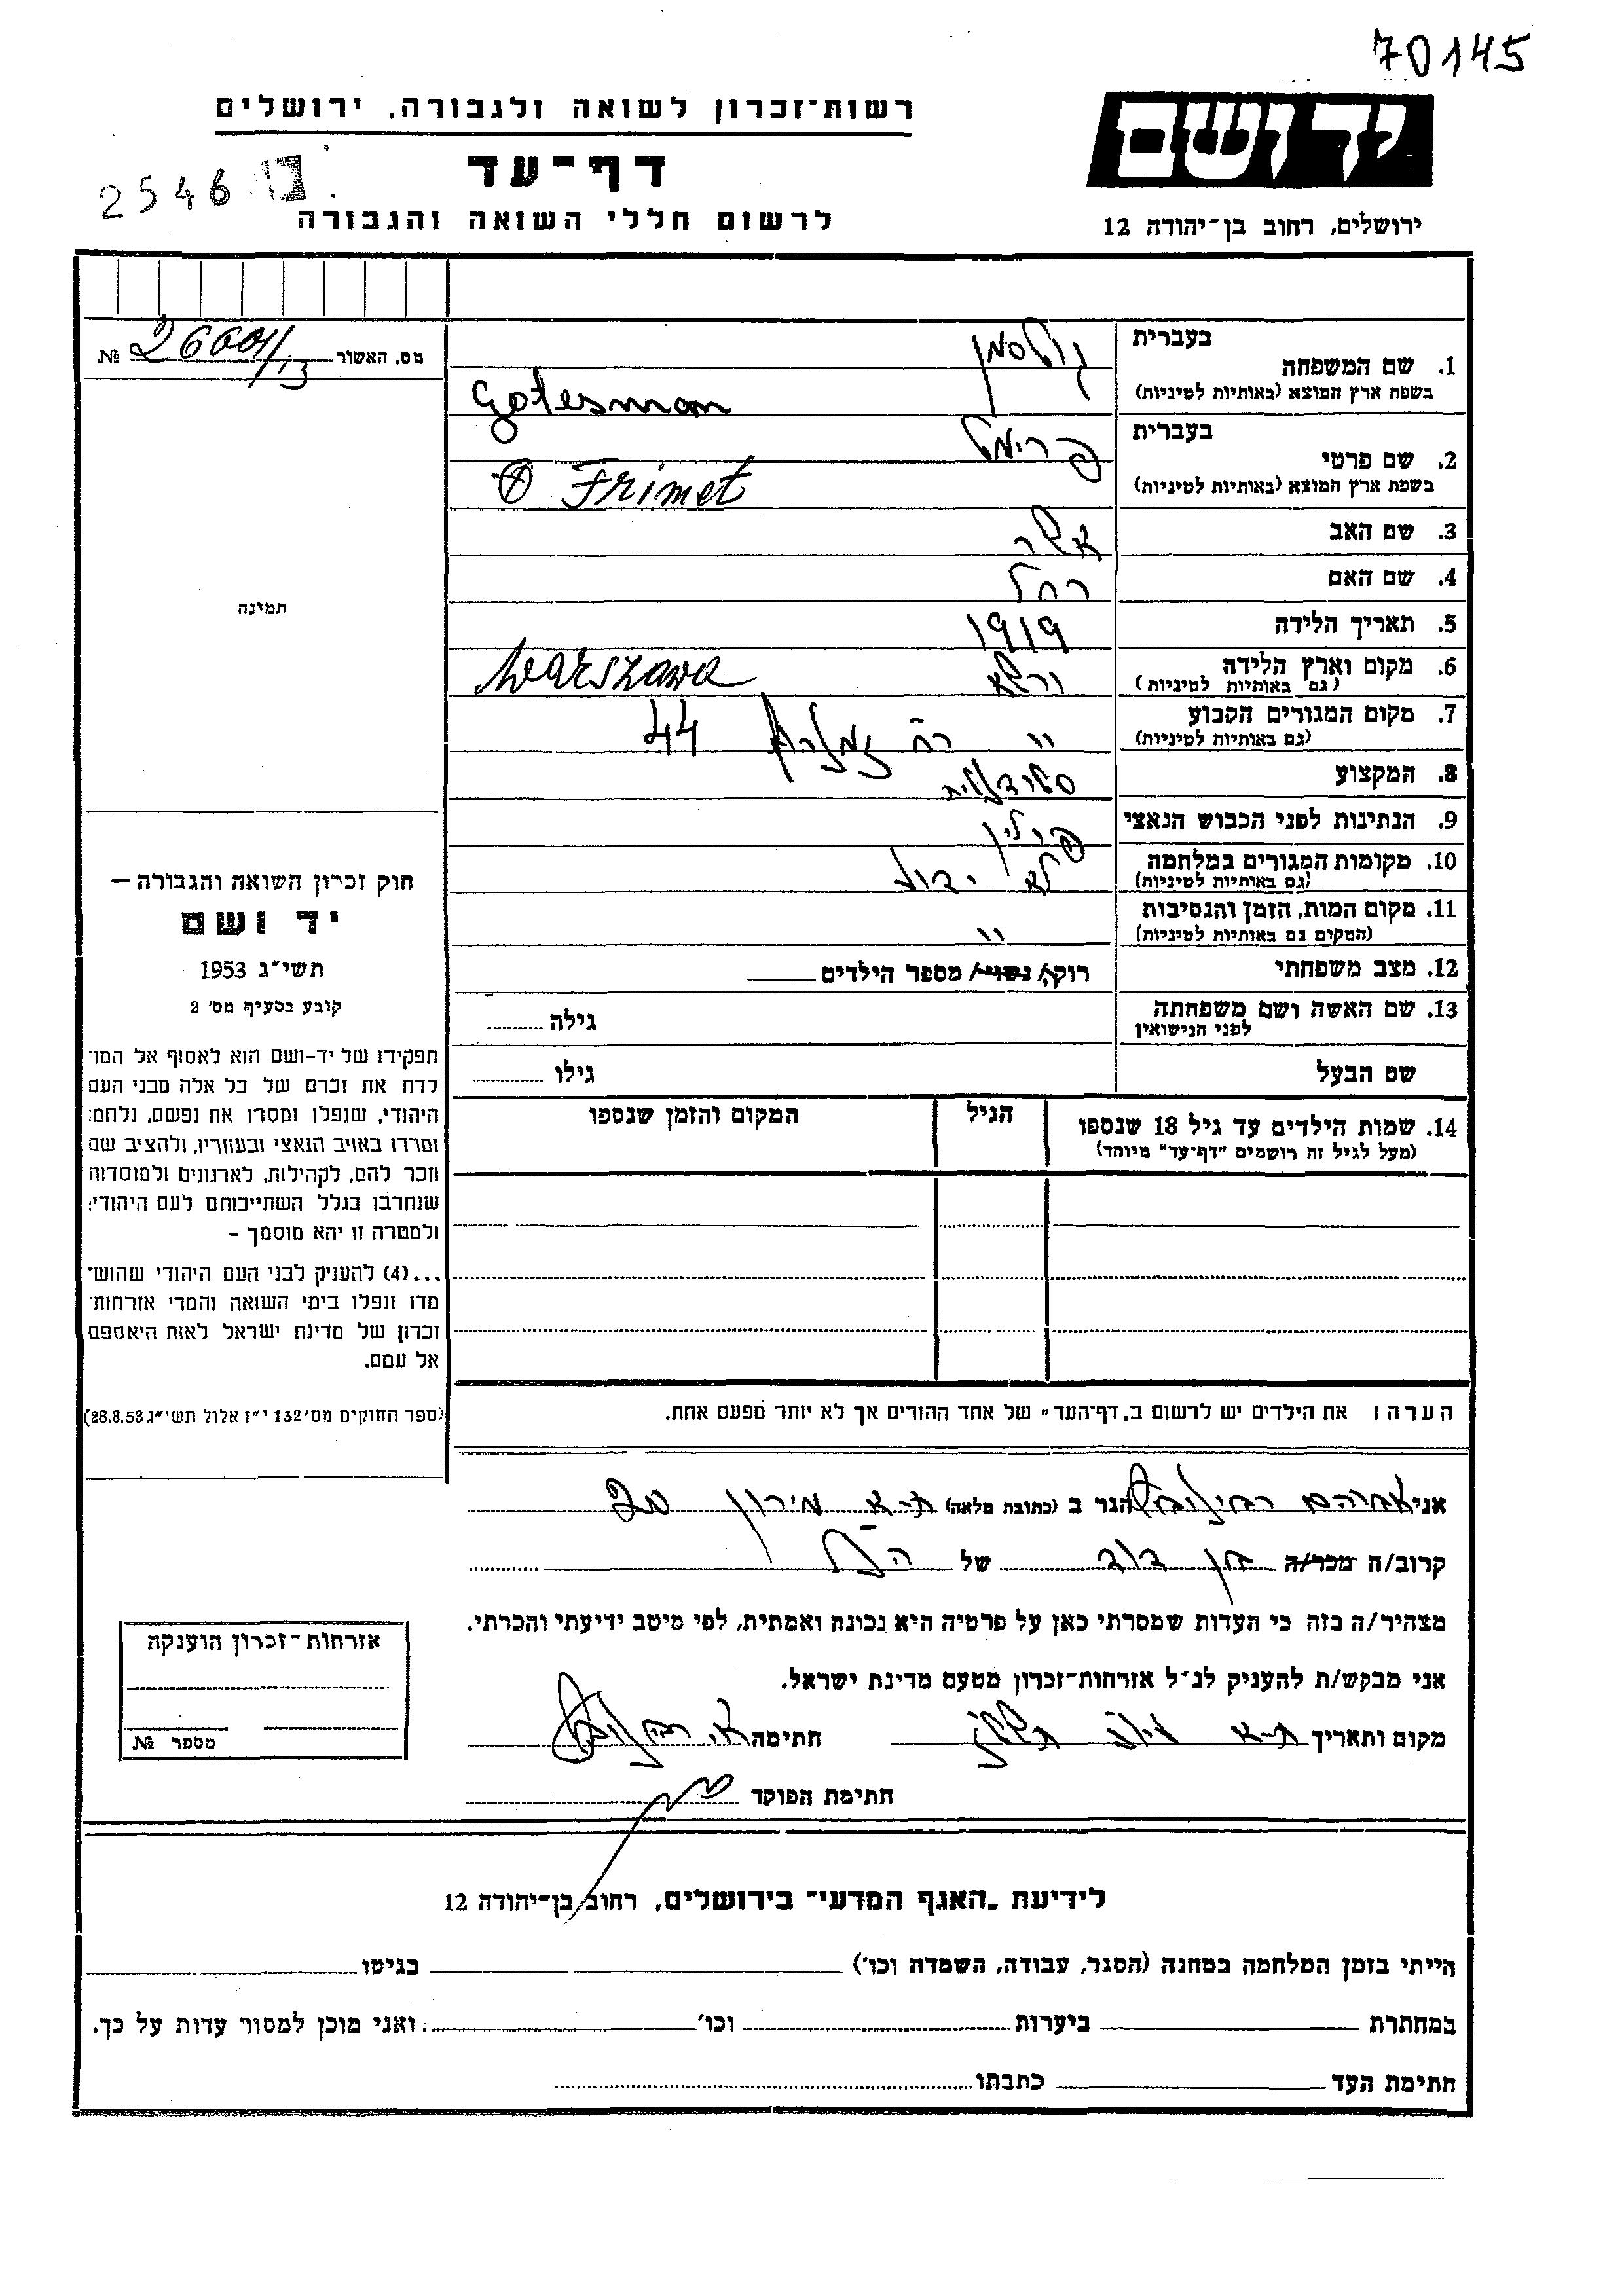 70145
יד ושם
ירושלים, רחוב בן־יהודה 12
רשות־זכרון לשואה ולגבורה, ירושלים
דף־עד
לרשום חללי השואה והגבורה
2546
מס. האשור № 26601/13
תמינה
1. שם המשפחה
בעברית גוטסמן
בשפת ארץ המוצא (באותיות לטיניות) Gotesman
2. שם פרטי
בעברית פרימט
בשפת ארץ המוצא (באותיות לטיניות) Frimet
3. שם האב אשר
4. שם האם רחל
5. תאריך הלידה 1919
6. מקום וארץ הלידה ורשא Warszawa
(גם באותיות לטיניות)
7. מקום המגורים הקבוע " רח' 44
(גם באותיות לטיניות)
8. המקצוע סטודנטית
9. הנתינות לפני הכבוש הנאצי פולין
10. מקומות המגורים במלחמה לא ידוע
(גם באותיות לטיניות)
11. מקום המות, הזמן והנסיבות "
(המקום גם באותיות לטיניות)
12. מצב משפחתי רוק/ נשוי/ מספר הילדים
13. שם האשה ושם משפחתה גילה
לפני הנישואין
שם הבעל גילו
14. שמות הילדים עד גיל 18 שנספו הגיל המקום והזמן שנספו
(מעל לגיל זה רושמים "דף־עד" מיוחד)
הערה: את הילדים יש לרשום ב„דף־העד" של אחד ההורים אך לא יותר מפעם אחת.
חוק זכרון השואה והגבורה –
יד ושם
תשי"ג 1953
קובע בסעיף מס' 2
תפקידו של יד-ושם הוא לאסוף אל המו־
לדת את זכרם של כל אלה מבני העם
היהודי, שנפלו ומסרו את נפשם, נלחמו
ומרדו באויב הנאצי ובעוזריו, ולהציב שם
וזכר להם, לקהילות, לארגונים ולמוסדות
שנחרבו בגלל השתייכותם לעם היהודי;
ולמטרה זו יהא מוסמך –
...(4) להעניק לבני העם היהודי שהוש־
מדו ונפלו בימי השואה והמרי אזרחות־
זכרון של מדינת ישראל לאות היאספם
אל עמם.
(ספר החוקים מס' 132 י"ז אלול תשי"ג 28.8.53)
אני אברהם הגר ב (כתובת מלאה) ת-א מירון
קרוב/ה מכר/ה בן דוד של
מצהיר/ה בזה כי העדות שמסרתי כאן על פרטיה היא נכונה ואמתית, לפי מיטב ידיעתי והכרתי.
אני מבקש/ת להעניק לנ"ל אזרחות־זכרון מטעם מדינת ישראל.
מקום ותאריך ת-א חתימה
חתימת הפוקד
אזרחות־זכרון הוענקה
מספר №
לידיעת „האגף המדעי" בירושלים, רחוב בן־יהודה 12
הייתי בזמן המלחמה במחנה (הסגר, עבודה, השמדה וכו') בגיטו
במחתרת ביערות וכו' ואני מוכן למסור עדות על כך.
חתימת העד כתבתו